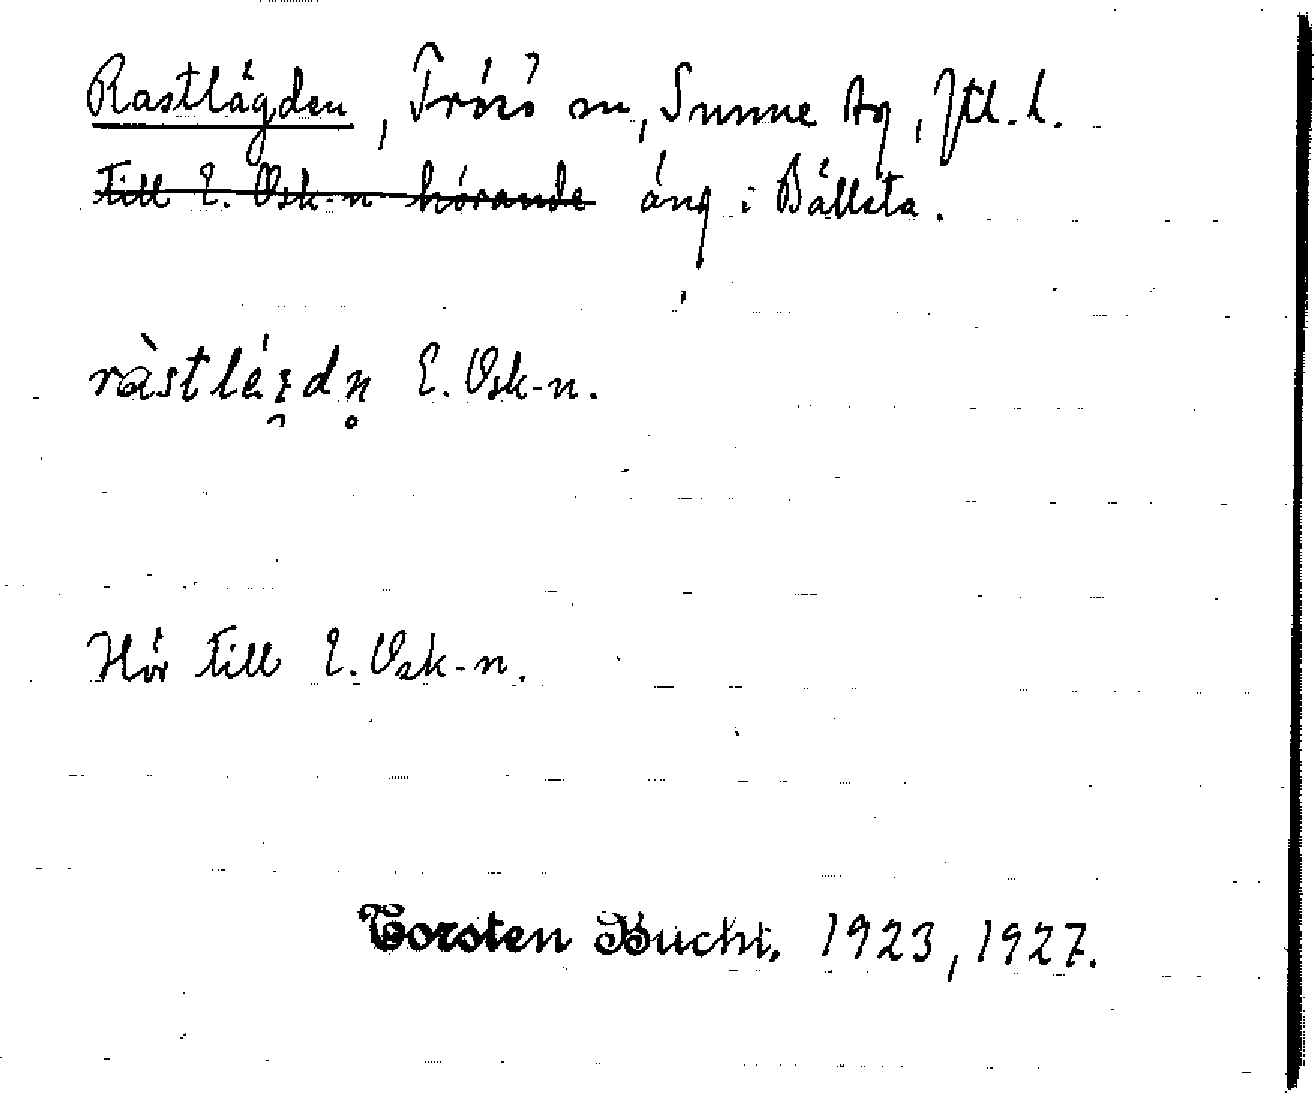 Rastlägden, Frösö sn, Sunne tg, Jtl. l.
till E. Osk-n hörande äng i Bällsta.
ràstlégdn̥ E. Osk-n.
Hör till E. Osk-n.
Torsten Bucht, 1923, 1927.